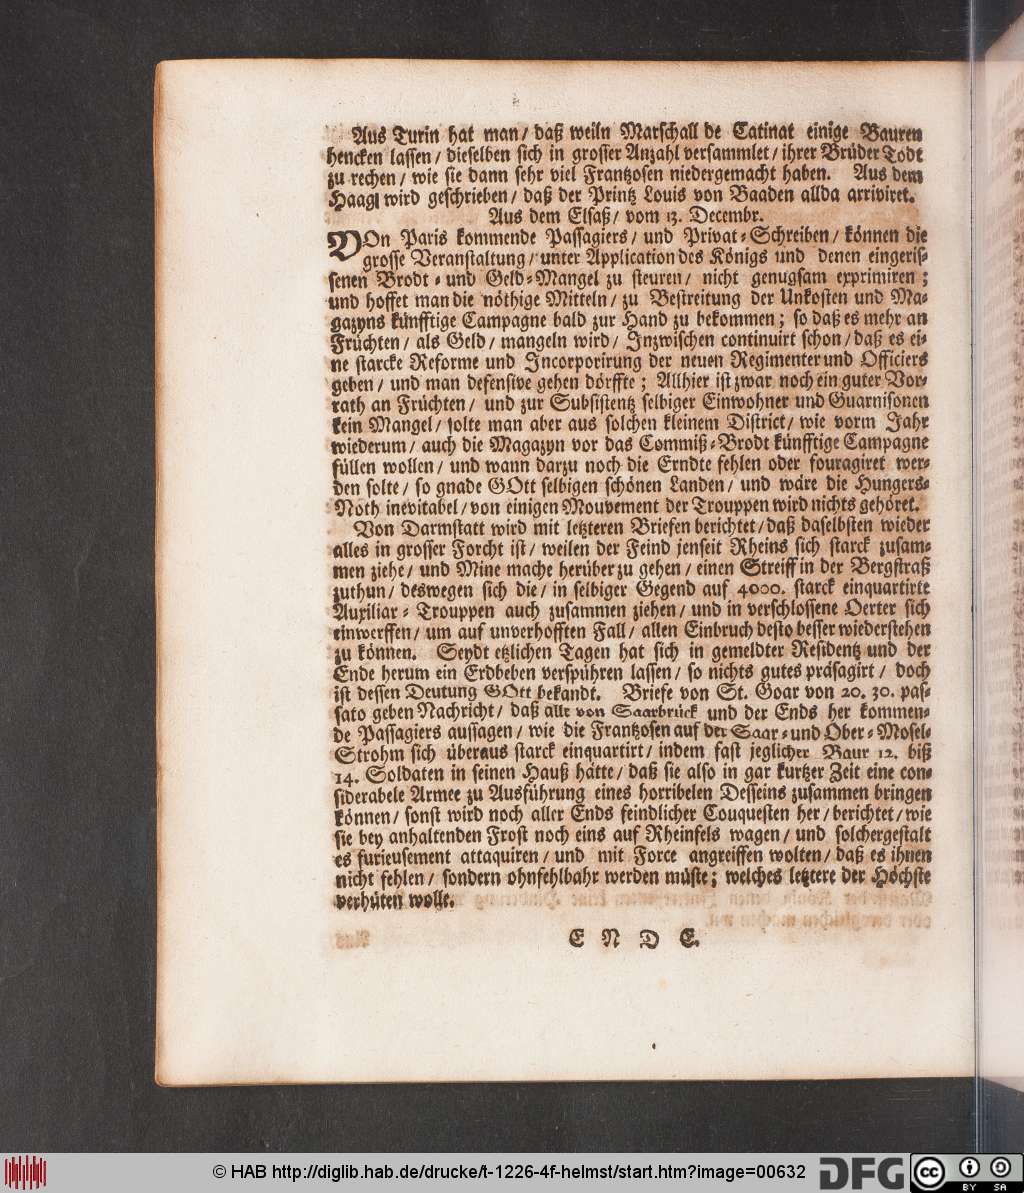 Aus Turin hat man / daß weiln Marschall de Catinat einige Bauren
hencken lassen / dieselben sich in grosser Anzahl versammlet / ihrer Brüder Todt
zu rechen / wie sie dann sehr viel Frantzosen niedergemacht haben. Aus dem
Haag wird geschrieben / daß der Printz Louis von Baaden allda arriviret.
Aus dem Elsaß / vom 13. Decembr.
VOn Paris kommende Passagiers / und Privat-Schreiben / können die
grosse Veranstaltung / unter Application des Königs und denen eingeris-
senen Brodt- und Geld-Mangel zu steuren / nicht genugsam exprimiren ;
und hoffet man die nöthige Mitteln / zu Bestreitung der Unkosten und Ma-
gazyns künfftige Campagne bald zur Hand zu bekommen ; so daß es mehr an
Früchten / als Geld / mangeln wird / Inzwischen continuirt schon / daß es ei-
ne starcke Reforme und Incorporirung der neuen Regimenter und Officiers
geben / und man defensive gehen dörffte ; Allhier ist zwar noch ein guter Vor-
rath an Früchten / und zur Subsistentz selbiger Einwohner und Guarnisonen
kein Mangel / solte man aber aus solchen kleinem District / wie vorm Jahr
wiederum / auch die Magazyn vor das Commiß-Brodt künfftige Campagne
füllen wollen / und wann darzu noch die Erndte fehlen oder fouragiret wer-
den solte / so gnade GOtt selbigen schönen Landen / und wäre die Hungers-
Noth inevitabel / von einigen Mouvement der Trouppen wird nichts gehöret.
Von Darmstatt wird mit letzteren Briefen berichtet / daß daselbsten wieder
alles in grosser Forcht ist / weilen der Feind jenseit Rheins sich starck zusam-
men ziehe / und Mine mache herüber zu gehen / einen Streiff in der Bergstraß
zuthun / deswegen sich die / in selbiger Gegend auf 4000. starck einquartirte
Auxiliar-Trouppen auch zusammen ziehen / und in verschlossene Oerter sich
einwerffen / um auf unverhofften Fall / allen Einbruch desto besser wiederstehen
zu können. Seydt etzlichen Tagen hat sich in gemeldter Residentz und der
Ende herum ein Erdbeben verspühren lassen / so nichts gutes präsagirt / doch
ist dessen Deutung GOtt bekandt. Briefe von St. Goar von 20. 30. pas-
sato geben Nachricht / daß alle von Saarbrück und der Ends her kommen-
de Passagiers aussagen / wie die Frantzosen auf der Saar- und Ober-Mosel-
Strohm sich überaus starck einquartirt / indem fast jeglicher Baur 12. biß
14. Soldaten in seinen Hauß hätte / daß sie also in gar kurtzer Zeit eine con-
siderabele Armee zu Ausführung eines horribelen Desseins zusammen bringen
können / sonst wird noch aller Ends feindlicher Couquesten her / berichtet / wie
sie bey anhaltenden Frost noch eins auf Rheinfels wagen / und solchergestalt
es furieusement attaquiren / und mit Force angreiffen wolten / daß es ihnen
nicht fehlen / sondern ohnfehlbahr werden müste ; welches letztere der Höchste
verhüten wolle.
E N D E.
© HAB http://diglib.hab.de/drucke/t-1226-4f-helmst/start.htm?image=00632
DFG
cc BY SA